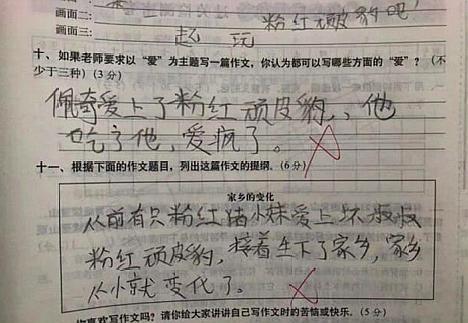 画面二：
粉红顽皮豹吧
画面三：
赵 玩
十、如果老师要求以“爱”为主题写一篇作文，你认为都可以写哪些方面的“爱”？(不
少于三种)(3分)
佩奇爱上了粉红顽皮豹、他
吃了他，爱疯了。
十一、根据下面的作文题目，列出这篇作文的提纲。(6分)
家乡的变化
从前有只粉红猪小妹爱上坏叔叔
粉红顽皮豹，接着生下了家乡，家乡
从小就变化了。
你喜欢写作文吗？请你给大家讲讲自己写作文时的苦恼或快乐。(5分)